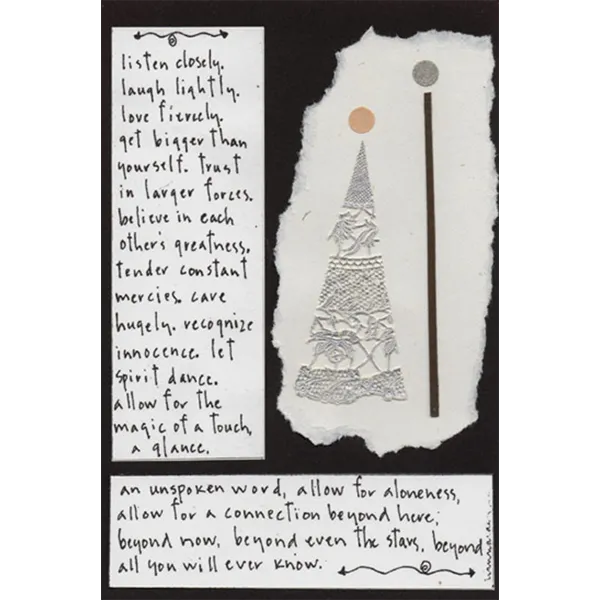 listen closely.
laugh lightly.
love fiercely.
get bigger than
yourself. trust
in larger forces.
believe in each
other's greatness.
tender constant
mercies. care
hugely. recognize
innocence. let
spirit dance.
allow for the
magic of a touch,
a glance,
an unspoken word, allow for aloneness,
allow for a connection beyond here;
beyond now, beyond even the stars, beyond
all you will ever know.